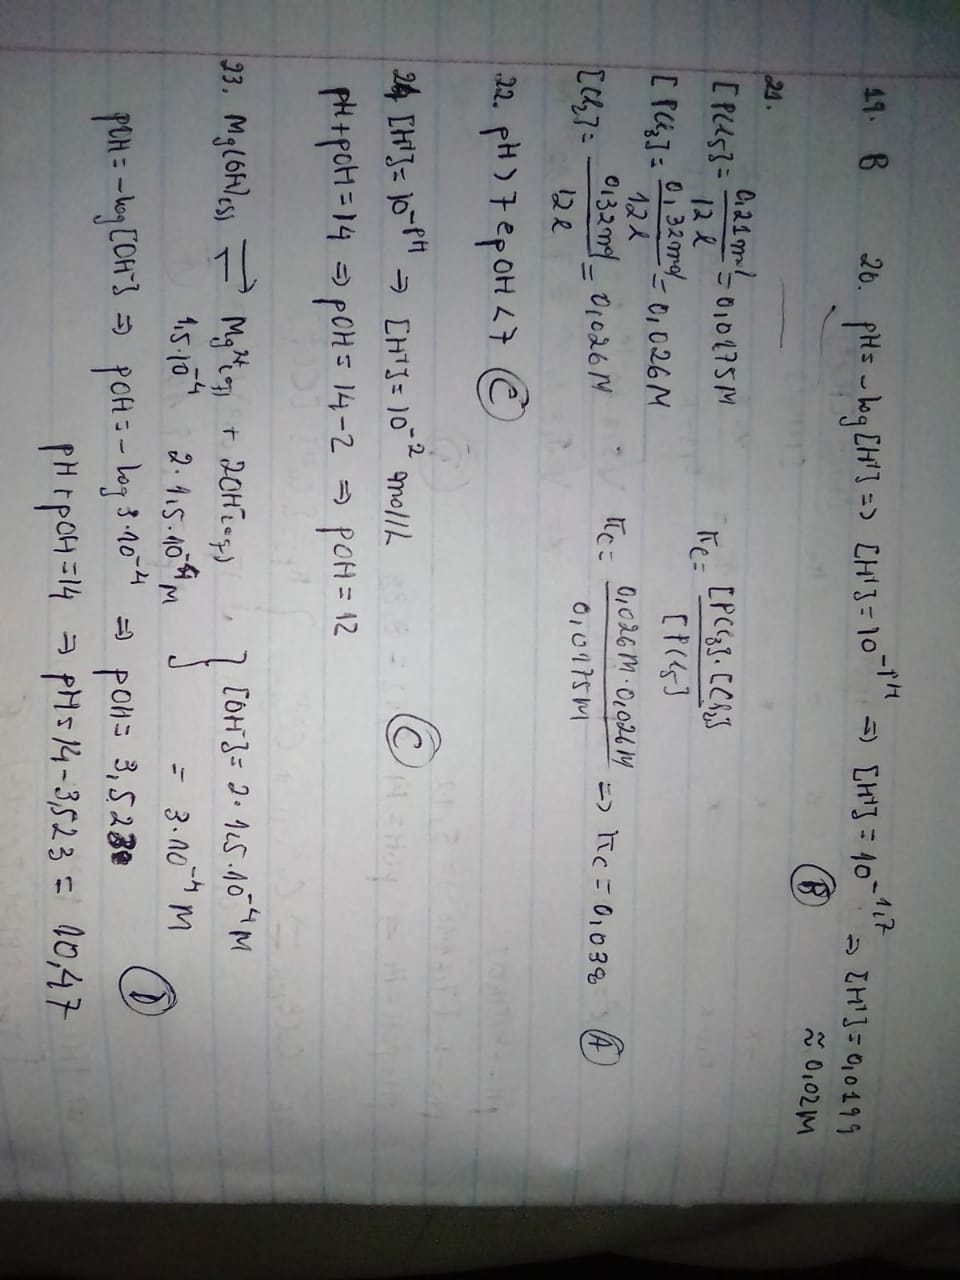 19. B 20. pH = -log[H⁺] => [H⁺] = 10^-pH => [H⁺] = 10^-1,7 => [H⁺] = 0,0199
≈ 0,02M
(B)
21.
[PCl₅] = 0,21mol / 12 l = 0,0175M
Kc = [PCl₃]·[Cl₂] / [PCl₅]
[PCl₃] = 0,32mol / 12 l = 0,026M
Kc = 0,026M·0,026M / 0,0175M => Kc = 0,038 (A)
[Cl₂] = 0,32mol / 12 l = 0,026M
22. pH > 7 e pOH < 7 (C)
24 [H⁺] = 10^-pH => [H⁺] = 10^-2 mol/L (C)
pH + pOH = 14 => pOH = 14 - 2 => pOH = 12
23. Mg(OH)(s) ⇌ Mg²⁺(aq) + 2OH⁻(aq) } [OH⁻] = 2·1,5·10^-4 M
1,5·10^-4 2·1,5·10^-4 M } = 3·10^-4 M
pOH = -log[OH⁻] => pOH = -log 3·10^-4 => pOH = 3,523 (D)
pH + pOH = 14 => pH = 14 - 3,523 = 10,47